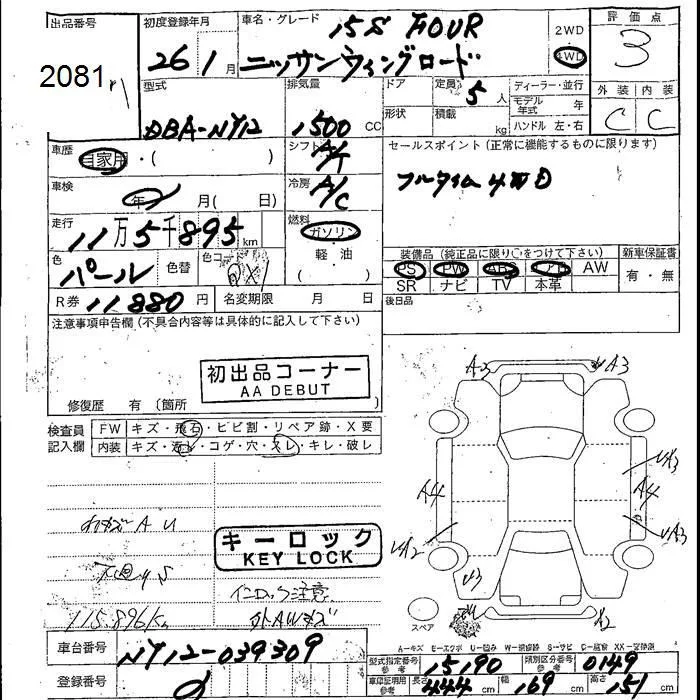 出品番号
2081
初度登録年月
26 1月
車名・グレード
15S FOUR
ニッサンウィングロード
2WD
4WD
評価点
3
外装 内装
C C
型式
DBA-NY12
排気量
1500 CC
ドア
形状
定員 5人
積載 kg
ディーラー・並行
モデル年式 年
ハンドル 左・右
車歴
自家用・( )
シフト A/T
セールスポイント (正常に機能するものに限ります)
フルタイム4WD
車検
年 月( 日)
冷房 A/C
走行
11万5千895km
燃料
ガソリン
軽・油
( )
色
パール
色替
色コード
QX1
装備品 (純正品に限り○をつけて下さい)
新車保証書
PS PW ABS エアB AW
SR ナビ TV 本革
有・無
R券 11880円
名変期限 月 日
後日品
注意事項申告欄 (不具合内容等は具体的に記入して下さい)
初出品コーナー
AA DEBUT
修復歴 有 〔箇所
検査員
記入欄
FW キズ・飛石・ヒビ割・リペア跡・X要
内装 キズ・汚レ・コゲ・穴・スレ・キレ・破レ
キーロック
KEY LOCK
小キズA U
下回りS
115,896K
インロック注意
外AWキズ
A3 A3
A4 A4
UA3
UA3
UA2
U3
A2
スペア
A-キズ E-エクボ U-凹み
車台番号 NY12-039309
登録番号
型式指定番号 参考 15190
類別区分番号 参考 0149
車庫証明用 参考 長さ 444 cm 幅 169 cm 高さ 151 cm